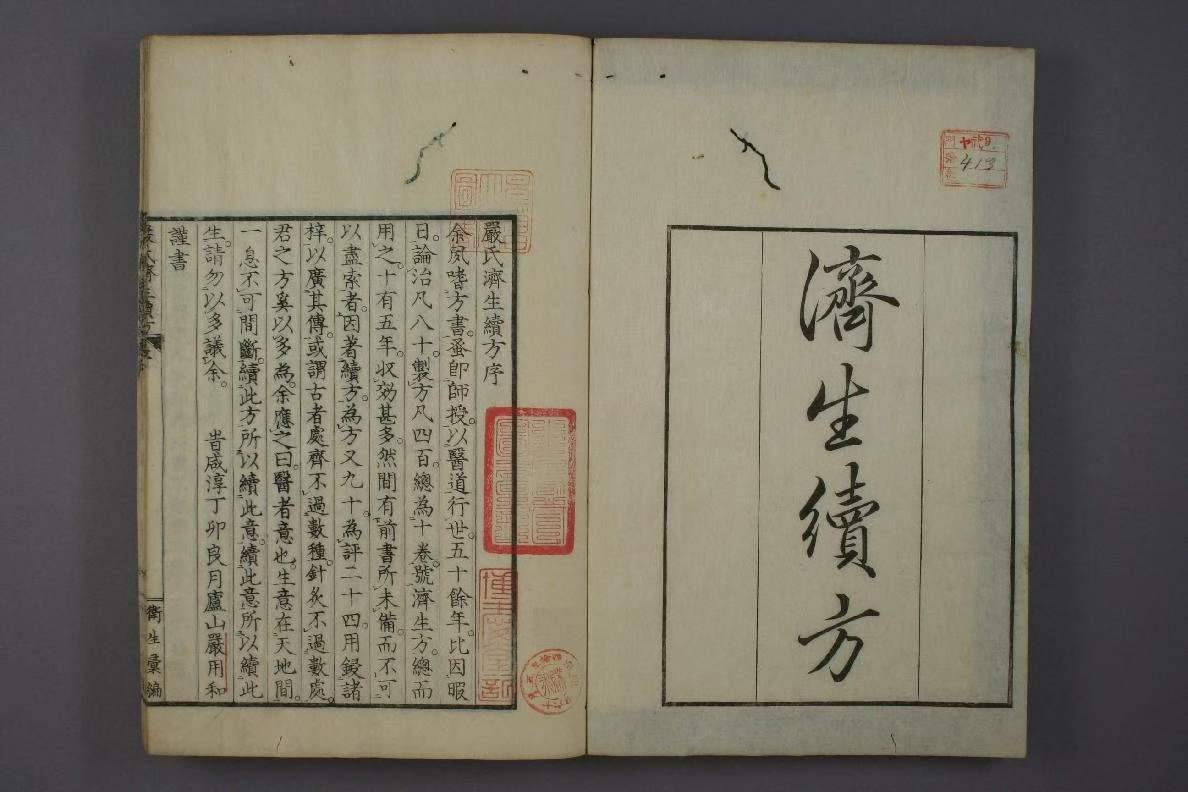 濟生續方
413
嚴氏濟生續方序
余夙嗜方書。蚤卽師授。以醫道行世。五十餘年。比因暇
日。論治凡八十。製方凡四百。總為十卷。號濟生方。總而
用之。十有五年。收効甚多。然間有前書所未備。而不可
以盡索者。因著續方。為方又九十。為評二十四。用鋟諸
梓。以廣其傳。或謂古者處齊不過數種。針灸不過數處。
君之方奚以多為。余應之曰。醫者意也。生意在天地間。
一息不可間斷。續此方所以續此意。續此意所以續此
生。請勿以多議余。 旹咸淳丁卯良月廬山嚴用和
謹書
衛生彙編